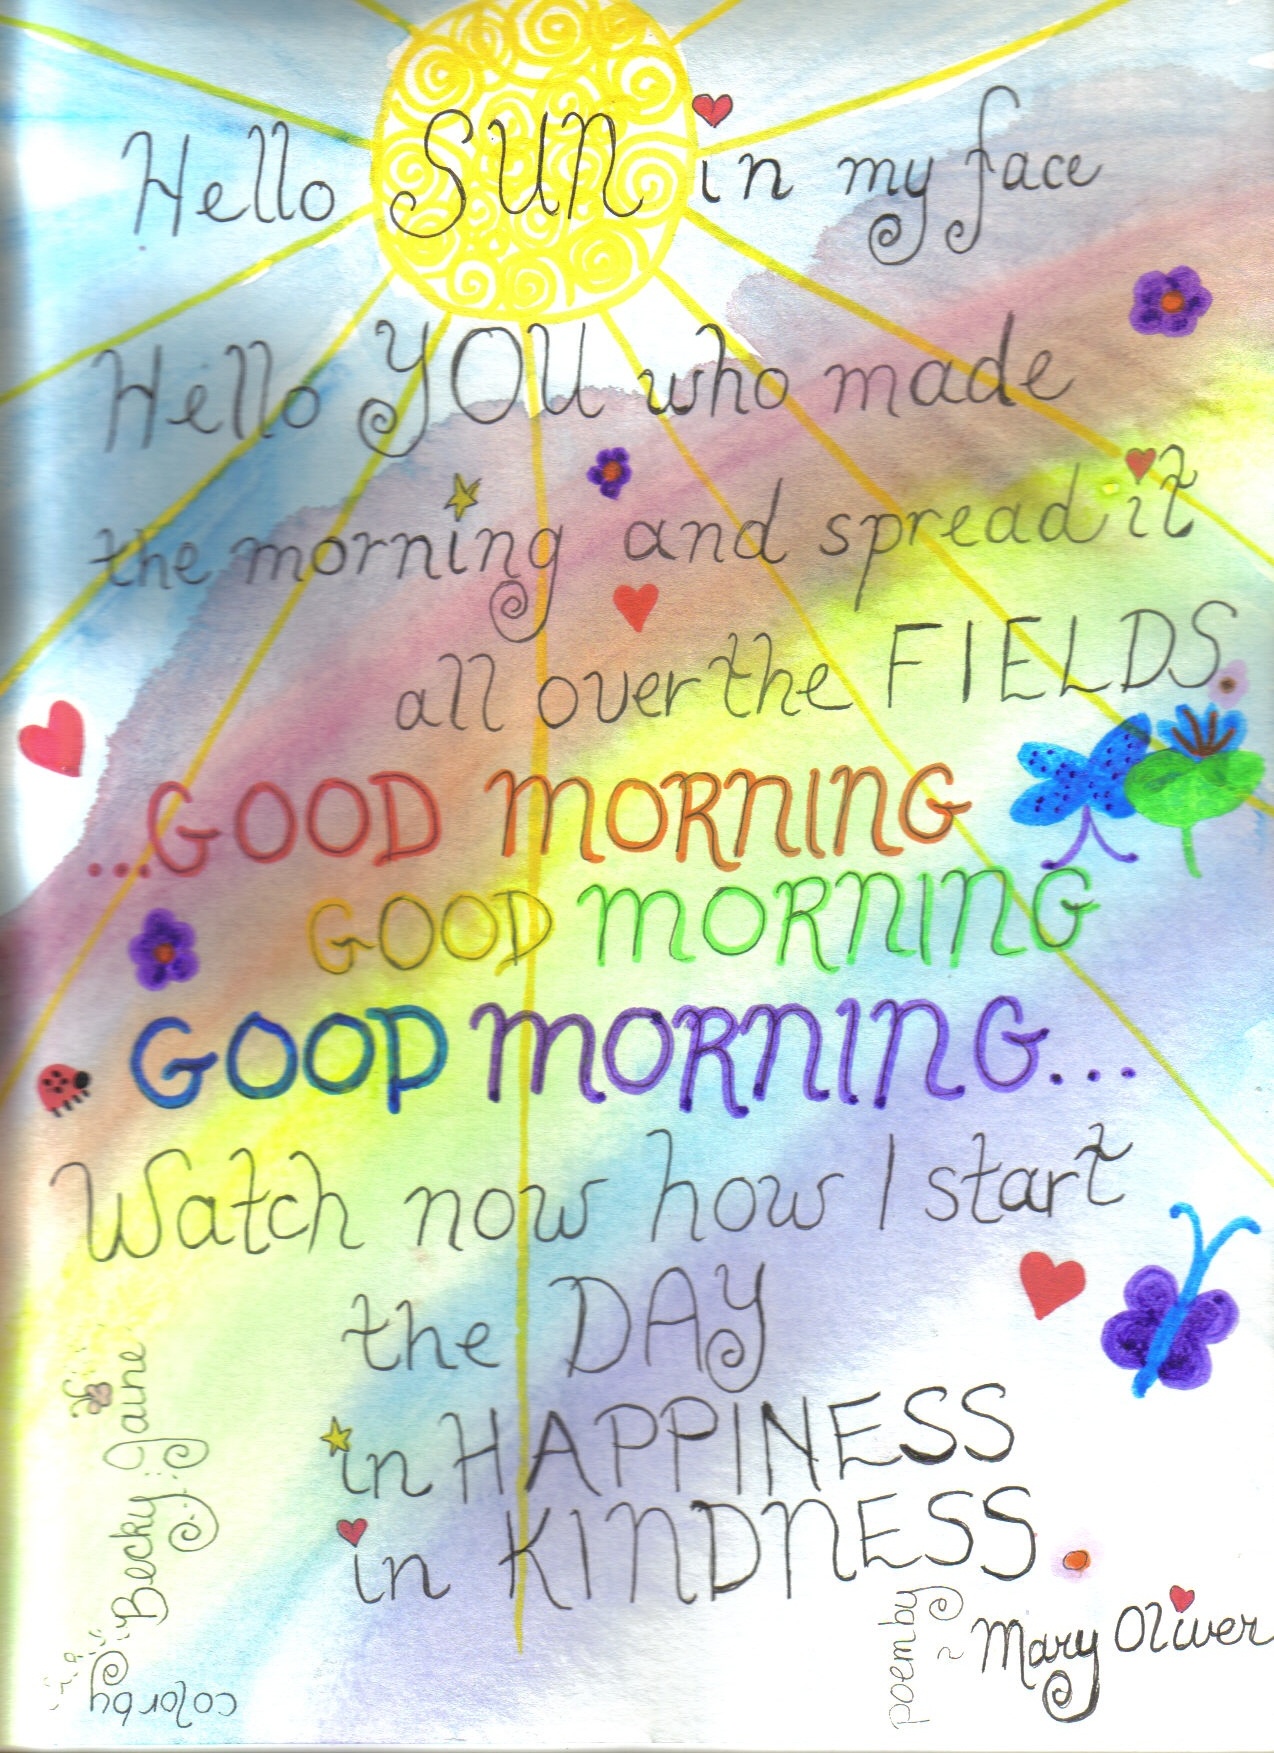 Hello SUN in my face
Hello YOU who made
the morning and spread it
all over the FIELDS
...GOOD MORNING
GOOD MORNING
GOOD MORNING...
Watch now how I start
the DAY
in HAPPINESS
in KINDNESS
poem by
Mary Oliver
color by
Becky Jaine